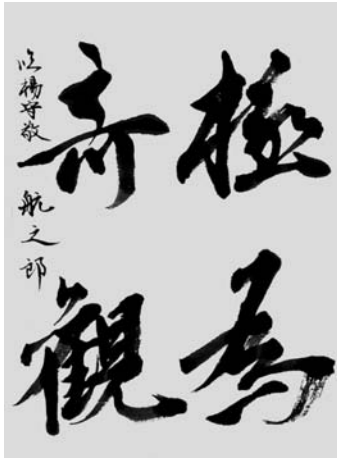 極為
奇觀
臨楊守敬 航之郎